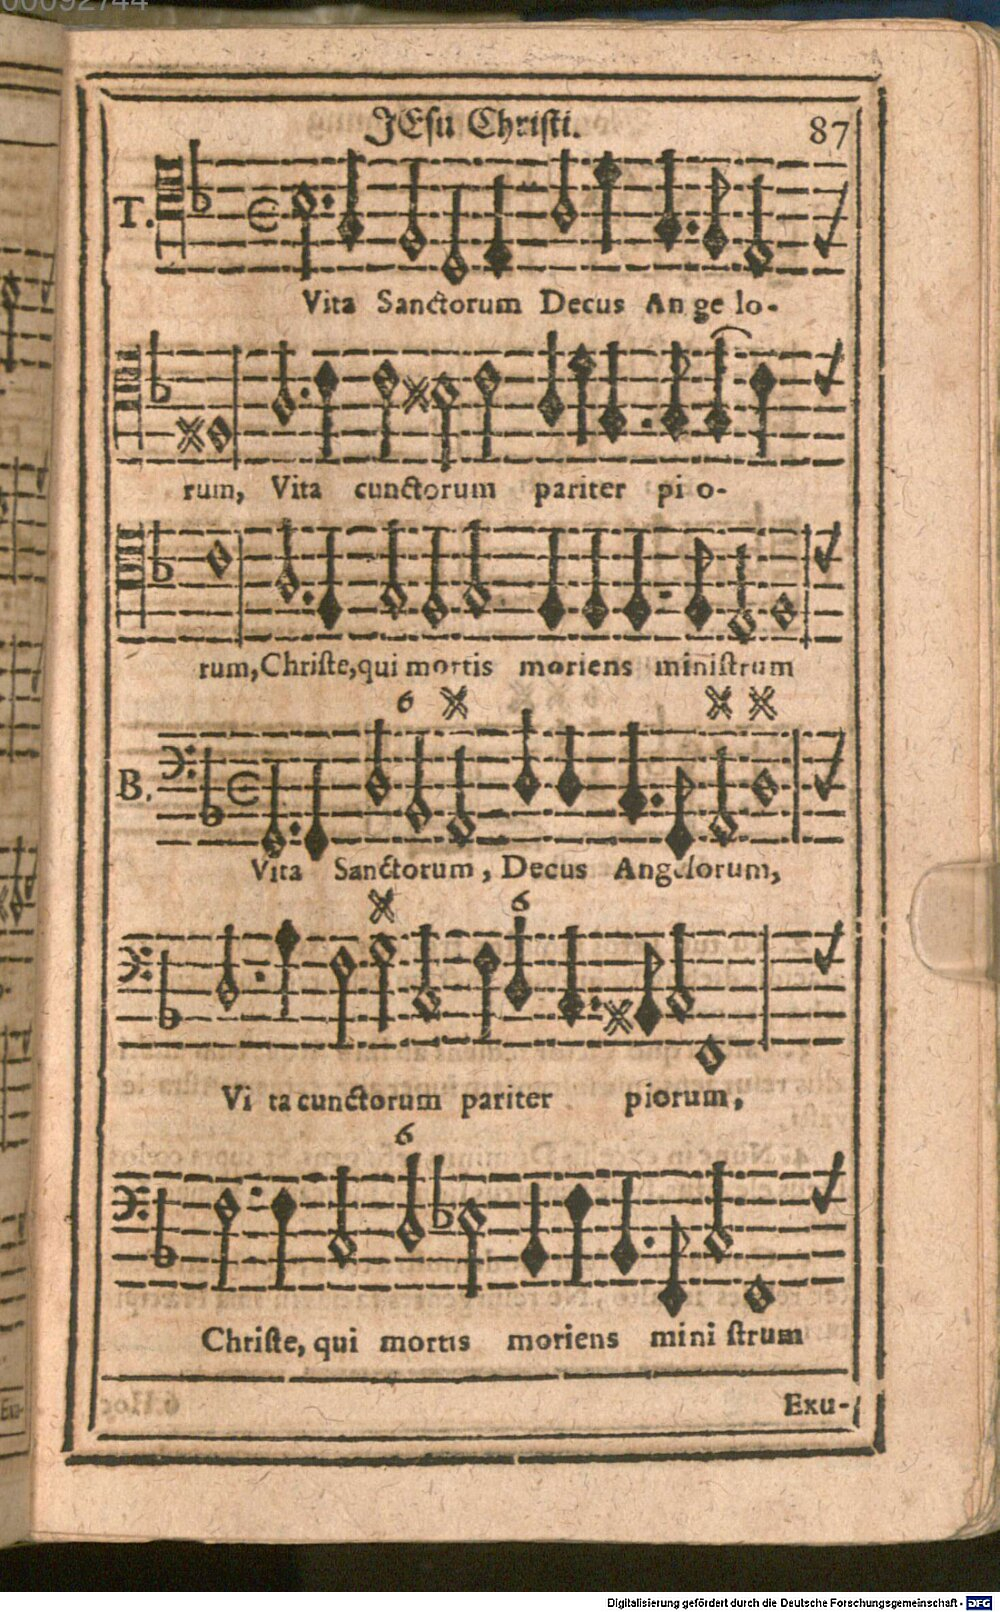 00092744
JEsu Christi.
87
T.
Vita Sanctorum Decus An ge lo-
rum, Vita cunctorum pariter pi o-
rum, Christe, qui mortis moriens ministrum
6
B.
Vita Sanctorum, Decus Angelorum,
6
Vi ta cunctorum pariter piorum,
6
Christe, qui mortis moriens mini strum
Exu-
Digitalisierung gefördert durch die Deutsche Forschungsgemeinschaft - DFG